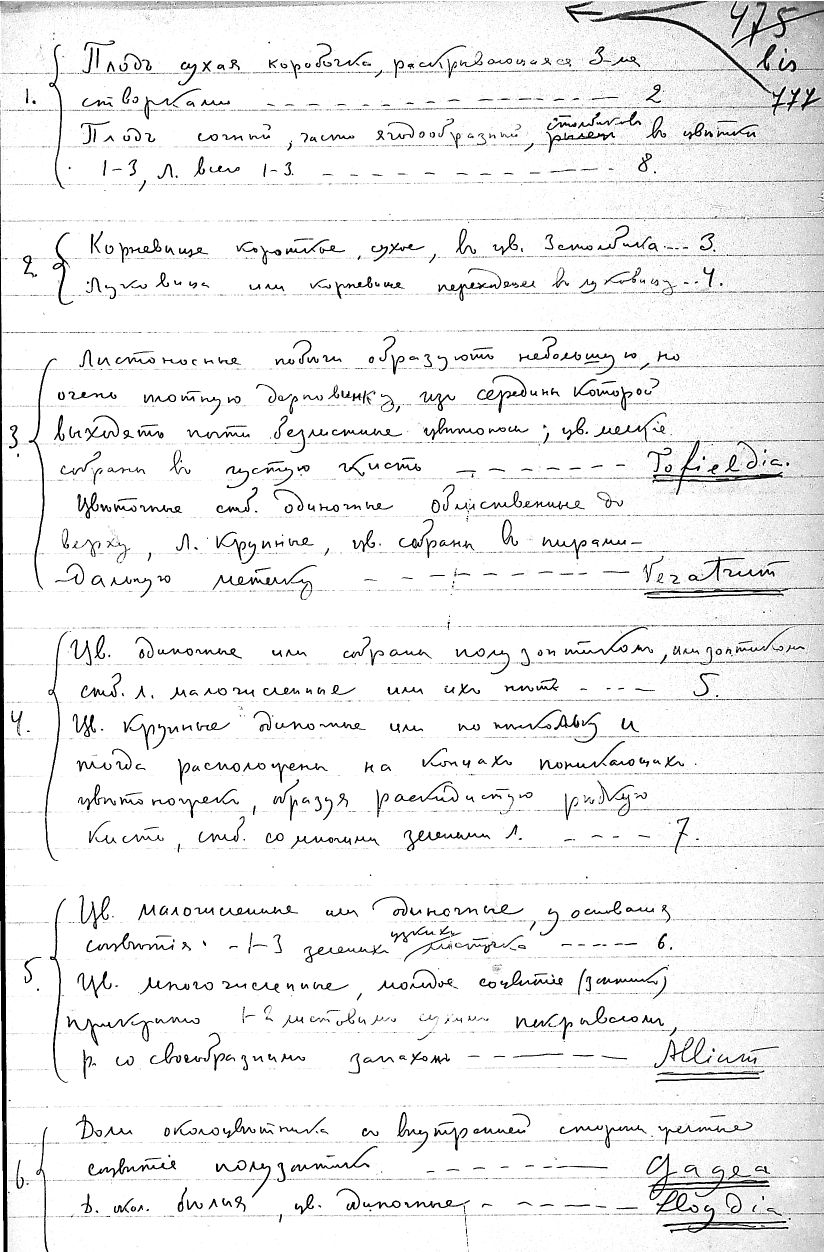 475
bis
777
1. Плодъ сухая коробочка, раскрывающаяся 3-мя
створками - - - - - - - - - 2
Плодъ сочный, часто ягодообразный, столбиковъ въ цвѣткѣ
1-3, л. всего 1-3 - - - - - - - - 8.
2. Корневище короткое, сухое, въ цв. 3 столбика --- 3.
Луковица или корневище переходящее въ луковицу -- 4.
3. Листоносные побѣги образуютъ небольшую, но
очень плотную дерновинку, изъ середины которой
выходятъ почти безлистные цвѣтоносы; цв. мелкіе
собраны въ густую кисть - - - - - - - Tofieldia.
Цвѣточные стб. одиночные облиственные до
верху, л. крупные, цв. собраны въ пирами-
дальную метелку - - - - - - - - - Veratrum
4. Цв. одиночные или собраны полузонтикомъ, или зонтикомъ
стб. л. малочисленные или ихъ нѣтъ - - - - 5.
Цв. крупные одиночные или по нѣскольку и
тогда расположены на концахъ поникающихъ
цвѣтоножекъ, образуя раскидистую рѣдкую
кисть, стб. со многими зелеными л. - - - - 7.
5. Цв. малочисленные или одиночные, у основанія
соцвѣтія - 1-3 зеленыхъ узкихъ листочка ----- 6.
Цв. многочисленные, молодое соцвѣтіе (зонтикъ)
прикрыто 1-2 листовымъ сухимъ покрываломъ,
р. со своеобразнымъ запахомъ - - - - - - Allium
6. Доли околоцвѣтника съ внутренней стороны желтые
соцвѣтіе полузонтикъ - - - - - - - Gagea
Д. окол. бѣлыя, цв. одиночные - - - - - Lloydia